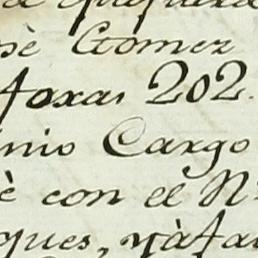 sè Gomez
foxas 202.
nio Cargo
è con el N
ques, yàfa